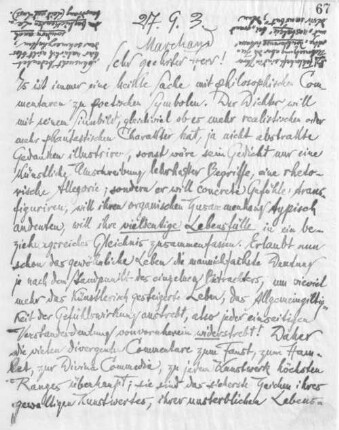 67
27. 9. 3.
Sehr geehrter Herr!
Es ist immer eine heikle Sache mit philosophischen Com-
mentaren zu poetischen Symbolen. Der Dichter will
mit seinem Sinnbild, gleichviel ob es mehr realistischen oder
mehr phantastischen Charakter hat, ja nicht abstrakte
Gedanken illustriren, sonst wäre sein Gedicht nur eine
künstliche Umschreibung lehrhafter Begriffe, eine rheto-
rische Allegorie; sondern er will concrete Gefühle trans-
figuriren, will ihren organischen Zusammenhang typisch
andeuten, will ihre vieldeutige Lebensfülle in ein be-
ziehungsreiches Gleichnis zusammenfassen. Erlaubt nun
schon das gewöhnliche Leben die mannichfachste Deutung
je nach dem Standpunkt des einzelnen Betrachters, um wieviel
mehr das künstlerisch gesteigerte Leben, das Allgemeingiltig-
keit der Gefühlswirkung anstrebt, aber jeder einseitigen
Verstandesdeutung von vornherein widerstrebt! Daher
die vielen divergenten Commentare zum Faust, zum Ham-
let, zur Divina Commedia, zu jedem Kunstwerk höchsten
Ranges überhaupt; sie sind das sicherste Zeichen ihres
gewaltigen Kunstwertes, ihrer unsterblichen Lebens-